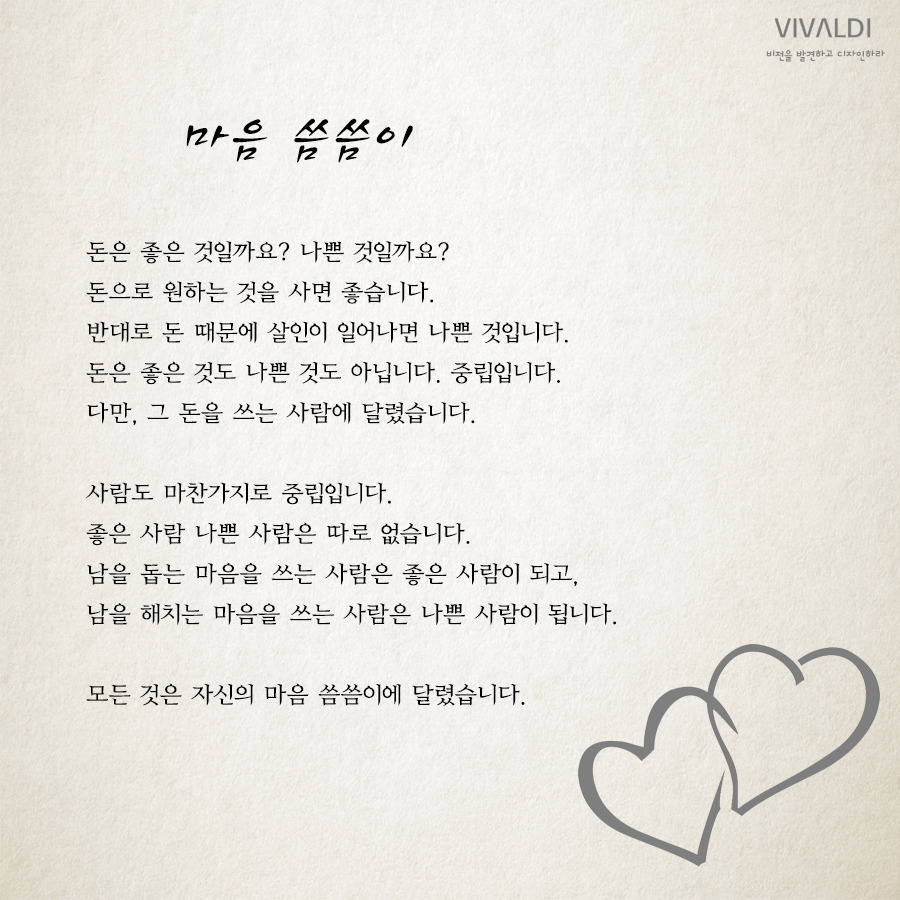 VIVALDI
비전을 발견하고 디자인하라
마음 씀씀이
돈은 좋은 것일까요? 나쁜 것일까요?
돈으로 원하는 것을 사면 좋습니다.
반대로 돈 때문에 살인이 일어나면 나쁜 것입니다.
돈은 좋은 것도 나쁜 것도 아닙니다. 중립입니다.
다만, 그 돈을 쓰는 사람에 달렸습니다.
사람도 마찬가지로 중립입니다.
좋은 사람 나쁜 사람은 따로 없습니다.
남을 돕는 마음을 쓰는 사람은 좋은 사람이 되고,
남을 해치는 마음을 쓰는 사람은 나쁜 사람이 됩니다.
모든 것은 자신의 마음 씀씀이에 달렸습니다.